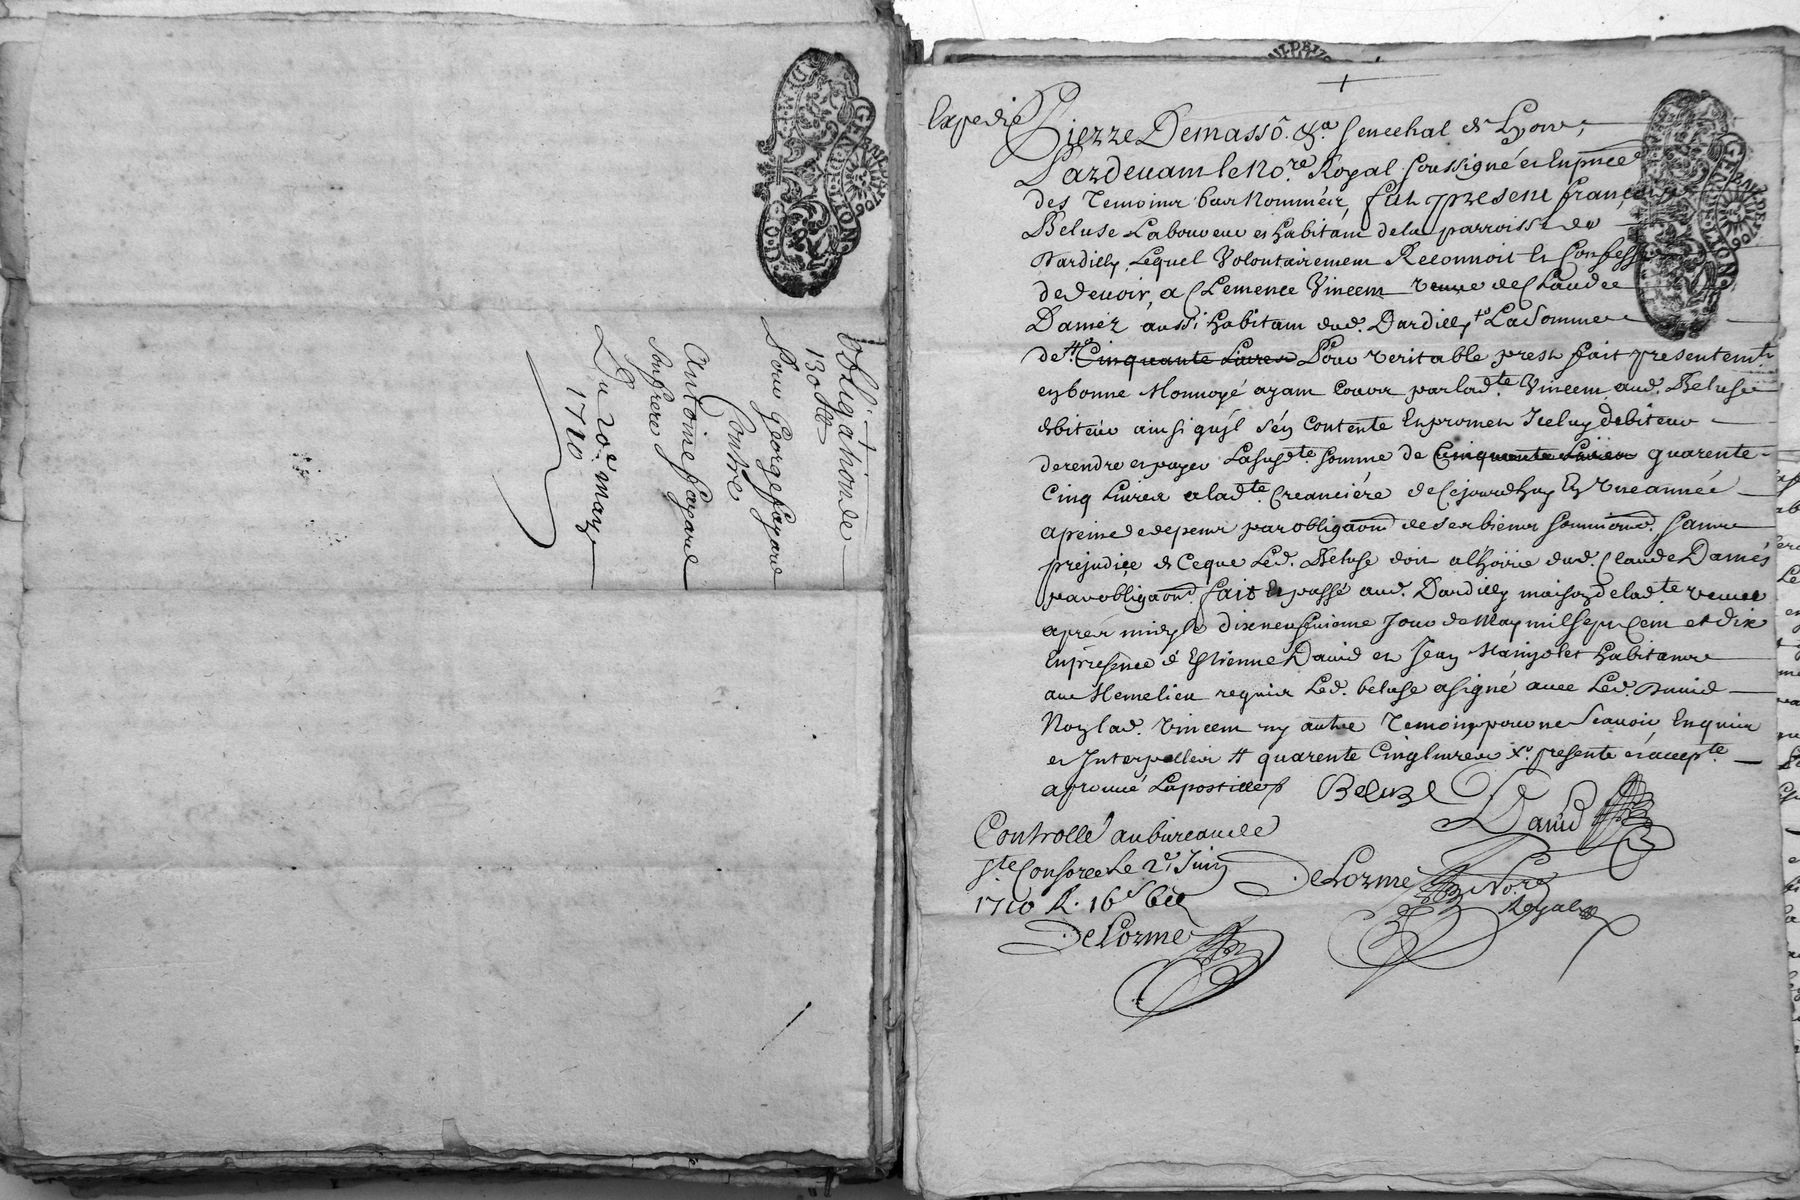 Obligation de
130 ₶
Pour George Fayard
Contre
Antoine Fayard
son frere
Du 20e. mars
1710
GEN. DE LION
Expedié
Pierre Demasso. &a. senechal de Lyon,
Pardevant le No.re Royal soussigné et en pnce
des Temoins bas Nommez, fut present françois
Beluse Laboureur et habitant de la parroisse de
Dardilly, Lequel Volontairement Reconnoit et Confesse
de devoir, a Clemence Vincent veuve de Claude
Damez aussi habitant dud. Dardilly, La Somme
de ₶ Cinquante Livres Pour veritable prest fait presentemt.
en bonne Monnoyé ayant Cour par lad.te Vincent aud. Beluse
debiteur ainsi qu'jl s'en Contente En promet Iceluy debiteur
de rendre et payer La susd.te somme de Cinquante Livres quarente
Cinq Livres a lad.te Creanciére de Cejourdhuy En Une année
a peine de depens par obligaon. de ses biens soumions. sans
prejudice de Ce que Led. Beluse doit a l'hoirie dud. Claude Damés
par obligaon. fait Et passé aud. Dardilly maison de lad.te veuve
aprés midy le dixneufviéme Jour de May mil sept Cent et dix
En presence d'Estienne David et Jean Mainjolet habitans
au Meme lieu requis Led. beluse a signé avec Led. David
Non lad. Vincent ny autre Temoin pour ne Scavoir, Enquis
et Interpellés ₶ quarente Cinq livres x. presente et accept.te
aprouvé La postille
Beluze
David
DeLorme No.re
Royal
Controllé au bureau de
ste Consorce Le 2e. Juin
1710 R. 16s
DeLorme